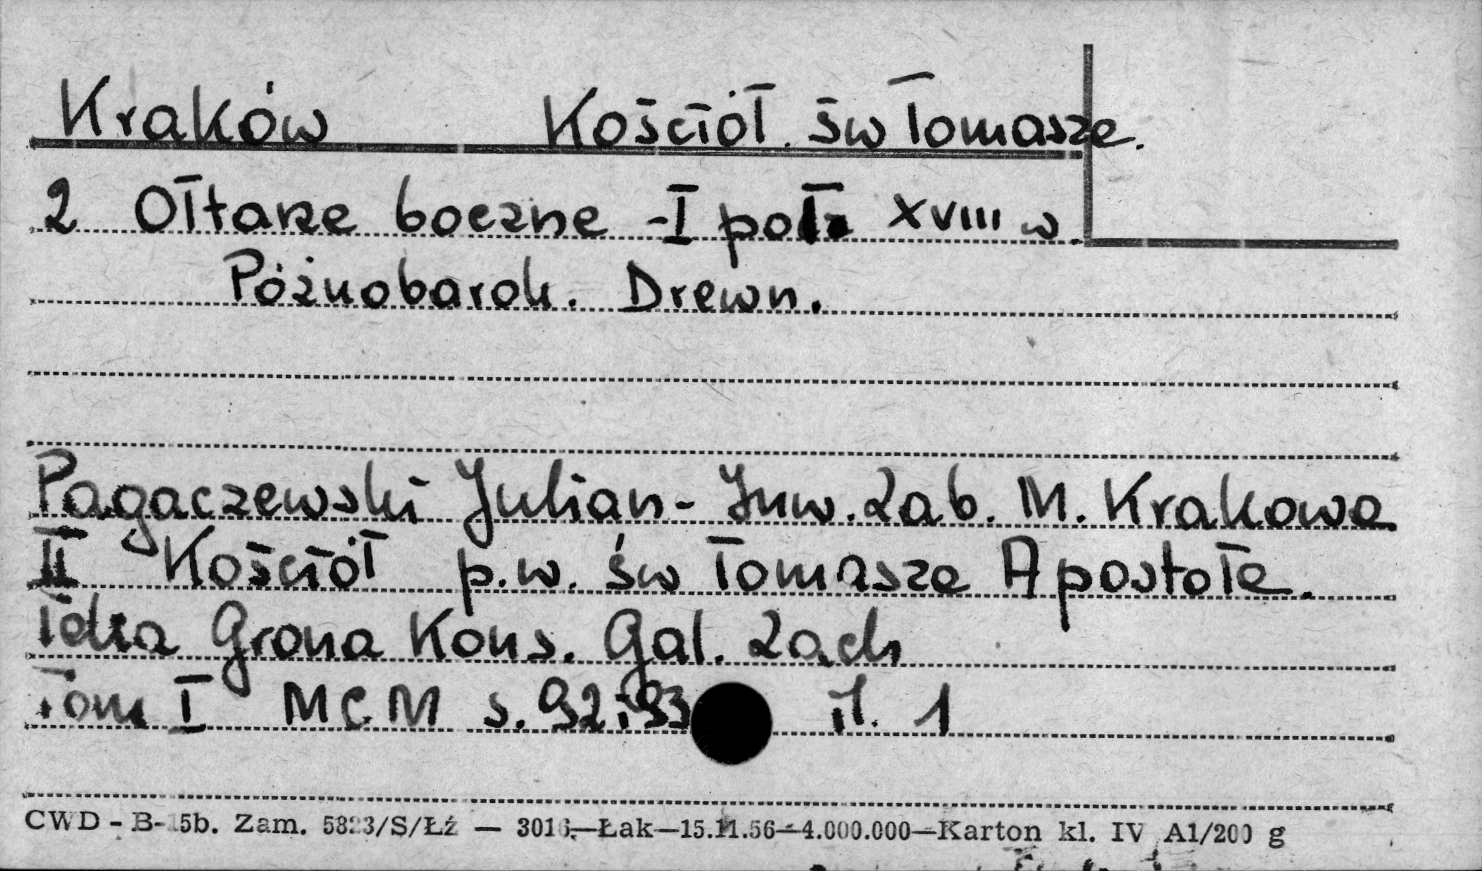 Kraków Kościół. św Tomasza.
2 Ołtarze boczne - I poł. XVIII w.
Późnobarok. Drewn.
Pagaczewski Julian - Inw. Zab. M. Krakowa
II Kościół p.w. św Tomasza Apostoła.
Teka Grona Kons. Gal. Zach
Tom I MCM s. 92i93 il. 1
CWD - B- 5b. Zam. 5823/S/Łź — 3016.—Łak—15.11.56—4.000.000—Karton kl. IV A1/200 g